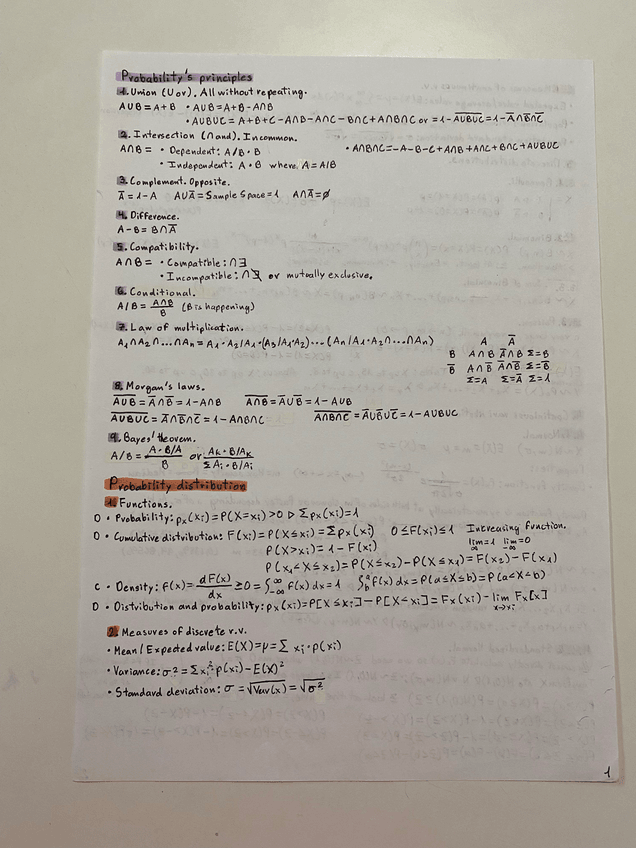 Probability's principles
1. Union (U or). All without repeating.
AUB = A+B • AUB = A+B-A∩B
• AUBUC = A+B+C-A∩B-A∩C-B∩C+A∩B∩C or = 1-A̅U̅B̅U̅C̅ = 1-A̅∩B̅∩C̅
2. Intersection (∩ and). In common.
A∩B = • Dependent: A/B · B • A∩B∩C = -A-B-C+A∩B+A∩C+B∩C+AUBUC
• Independent: A · B where A = A/B
3. Complement. Opposite.
A̅ = 1-A AUA̅ = Sample Space = 1 A∩A̅ = ∅
4. Difference.
A-B = B∩A̅
5. Compatibility.
A∩B = • Compatible: ∩∃
• Incompatible: ∩∄ or mutually exclusive.
6. Conditional.
A/B = A∩B/B (B is happening)
7. Law of multiplication.
A₁∩A₂∩...∩Aₙ = A₁·A₂/A₁·(A₃/A₁·A₂)...(Aₙ/A₁·A₂∩...∩Aₙ)
A A̅
B A∩B A̅∩B Σ=B
B̅ A∩B̅ A̅∩B̅ Σ=B̅
Σ=A Σ=A̅ Σ=1
8. Morgan's laws.
A̅U̅B̅ = A̅∩B̅ = 1-A∩B A̅∩̅B̅ = A̅UB̅ = 1-AUB
A̅U̅B̅U̅C̅ = A̅∩B̅∩C̅ = 1-A∩B∩C A̅∩̅B̅∩̅C̅ = A̅UB̅UC̅ = 1-AUBUC
9. Bayes' theorem.
A/B = A·B/A / B or Aₖ·B/Aₖ / ΣAᵢ·B/Aᵢ
Probability distribution
1. Functions.
D • Probability: pₓ(xᵢ) = P(X=xᵢ) > 0 ▷ Σpₓ(xᵢ) = 1
D • Cumulative distribution: F(xᵢ) = P(X≤xᵢ) = Σpₓ(xᵢ) 0≤F(xᵢ)≤1 Increasing function.
lim=1 ∞ lim=0 -∞
P(X>xᵢ) = 1-F(xᵢ)
P(x₁<X≤x₂) = P(X≤x₂)-P(X≤x₁) = F(x₂)-F(x₁)
C • Density: f(x) = dF(x)/dx ≥ 0 = ∫₋∞^∞ f(x) dx = 1 ∫_b^a f(x) dx = P(a≤X≤b) = P(a<X<b)
D • Distribution and probability: pₓ(xᵢ) = P[X≤xᵢ]-P[X<xᵢ] = Fₓ(xᵢ)-lim x→xᵢ Fₓ[x]
2. Measures of discrete r.v.
• Mean/Expected value: E(X) = μ = Σ xᵢ·p(xᵢ)
• Variance: σ² = Σxᵢ²·p(xᵢ)-E(X)²
• Standard deviation: σ = √Var(x) = √σ²
1